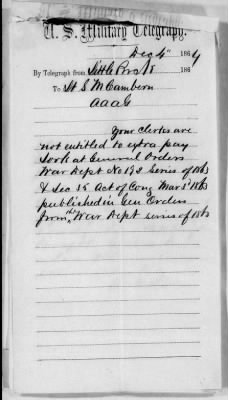 U. S. Military Telegraph.
Dec 4" 1864
By Telegraph from Little Rock 186
To Lt S M Cambern
AAAG
Your clerks are
not entitled to extra pay
Look at General Orders
War Dept No 192 Series of 1863
& Sec 35 Act of Cong Mar 3" 1863
published in Gen Orders
from the War Dept series of 1863